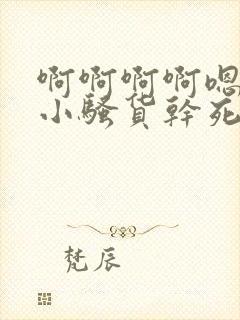 啊啊啊啊嗯
小骚货幹死
梵辰